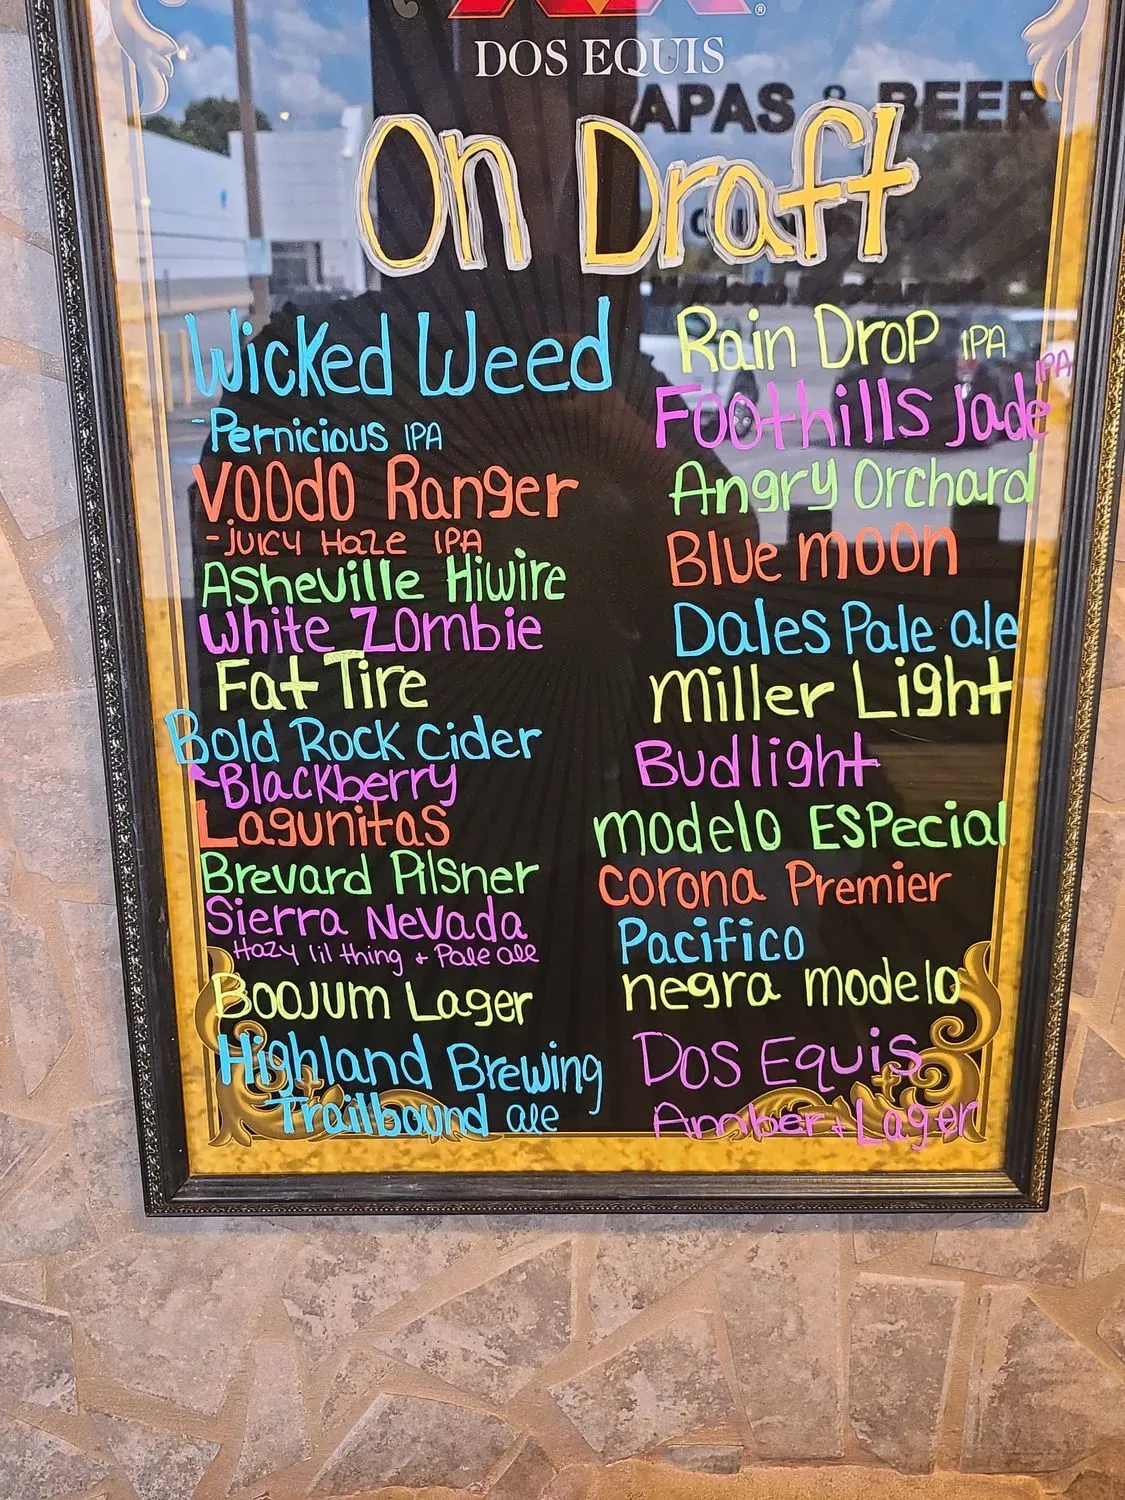 DOS EQUIS
APAS & BEER
On Draft
Wicked Weed
-Pernicious IPA
Voodo Ranger
-Juicy Haze IPA
Asheville Hiwire
White Zombie
Fat Tire
Bold Rock Cider
Blackberry
Lagunitas
Brevard Pilsner
Sierra Nevada
Hazy lil thing + Pale ale
Boojum Lager
Highland Brewing
Trailbound ale
Rain Drop IPA
Foothills Jade IPA
Angry Orchard
Blue moon
Dales Pale ale
Miller Light
Budlight
modelo Especial
Corona Premier
Pacifico
negra modelo
Dos Equis
Amber + Lager